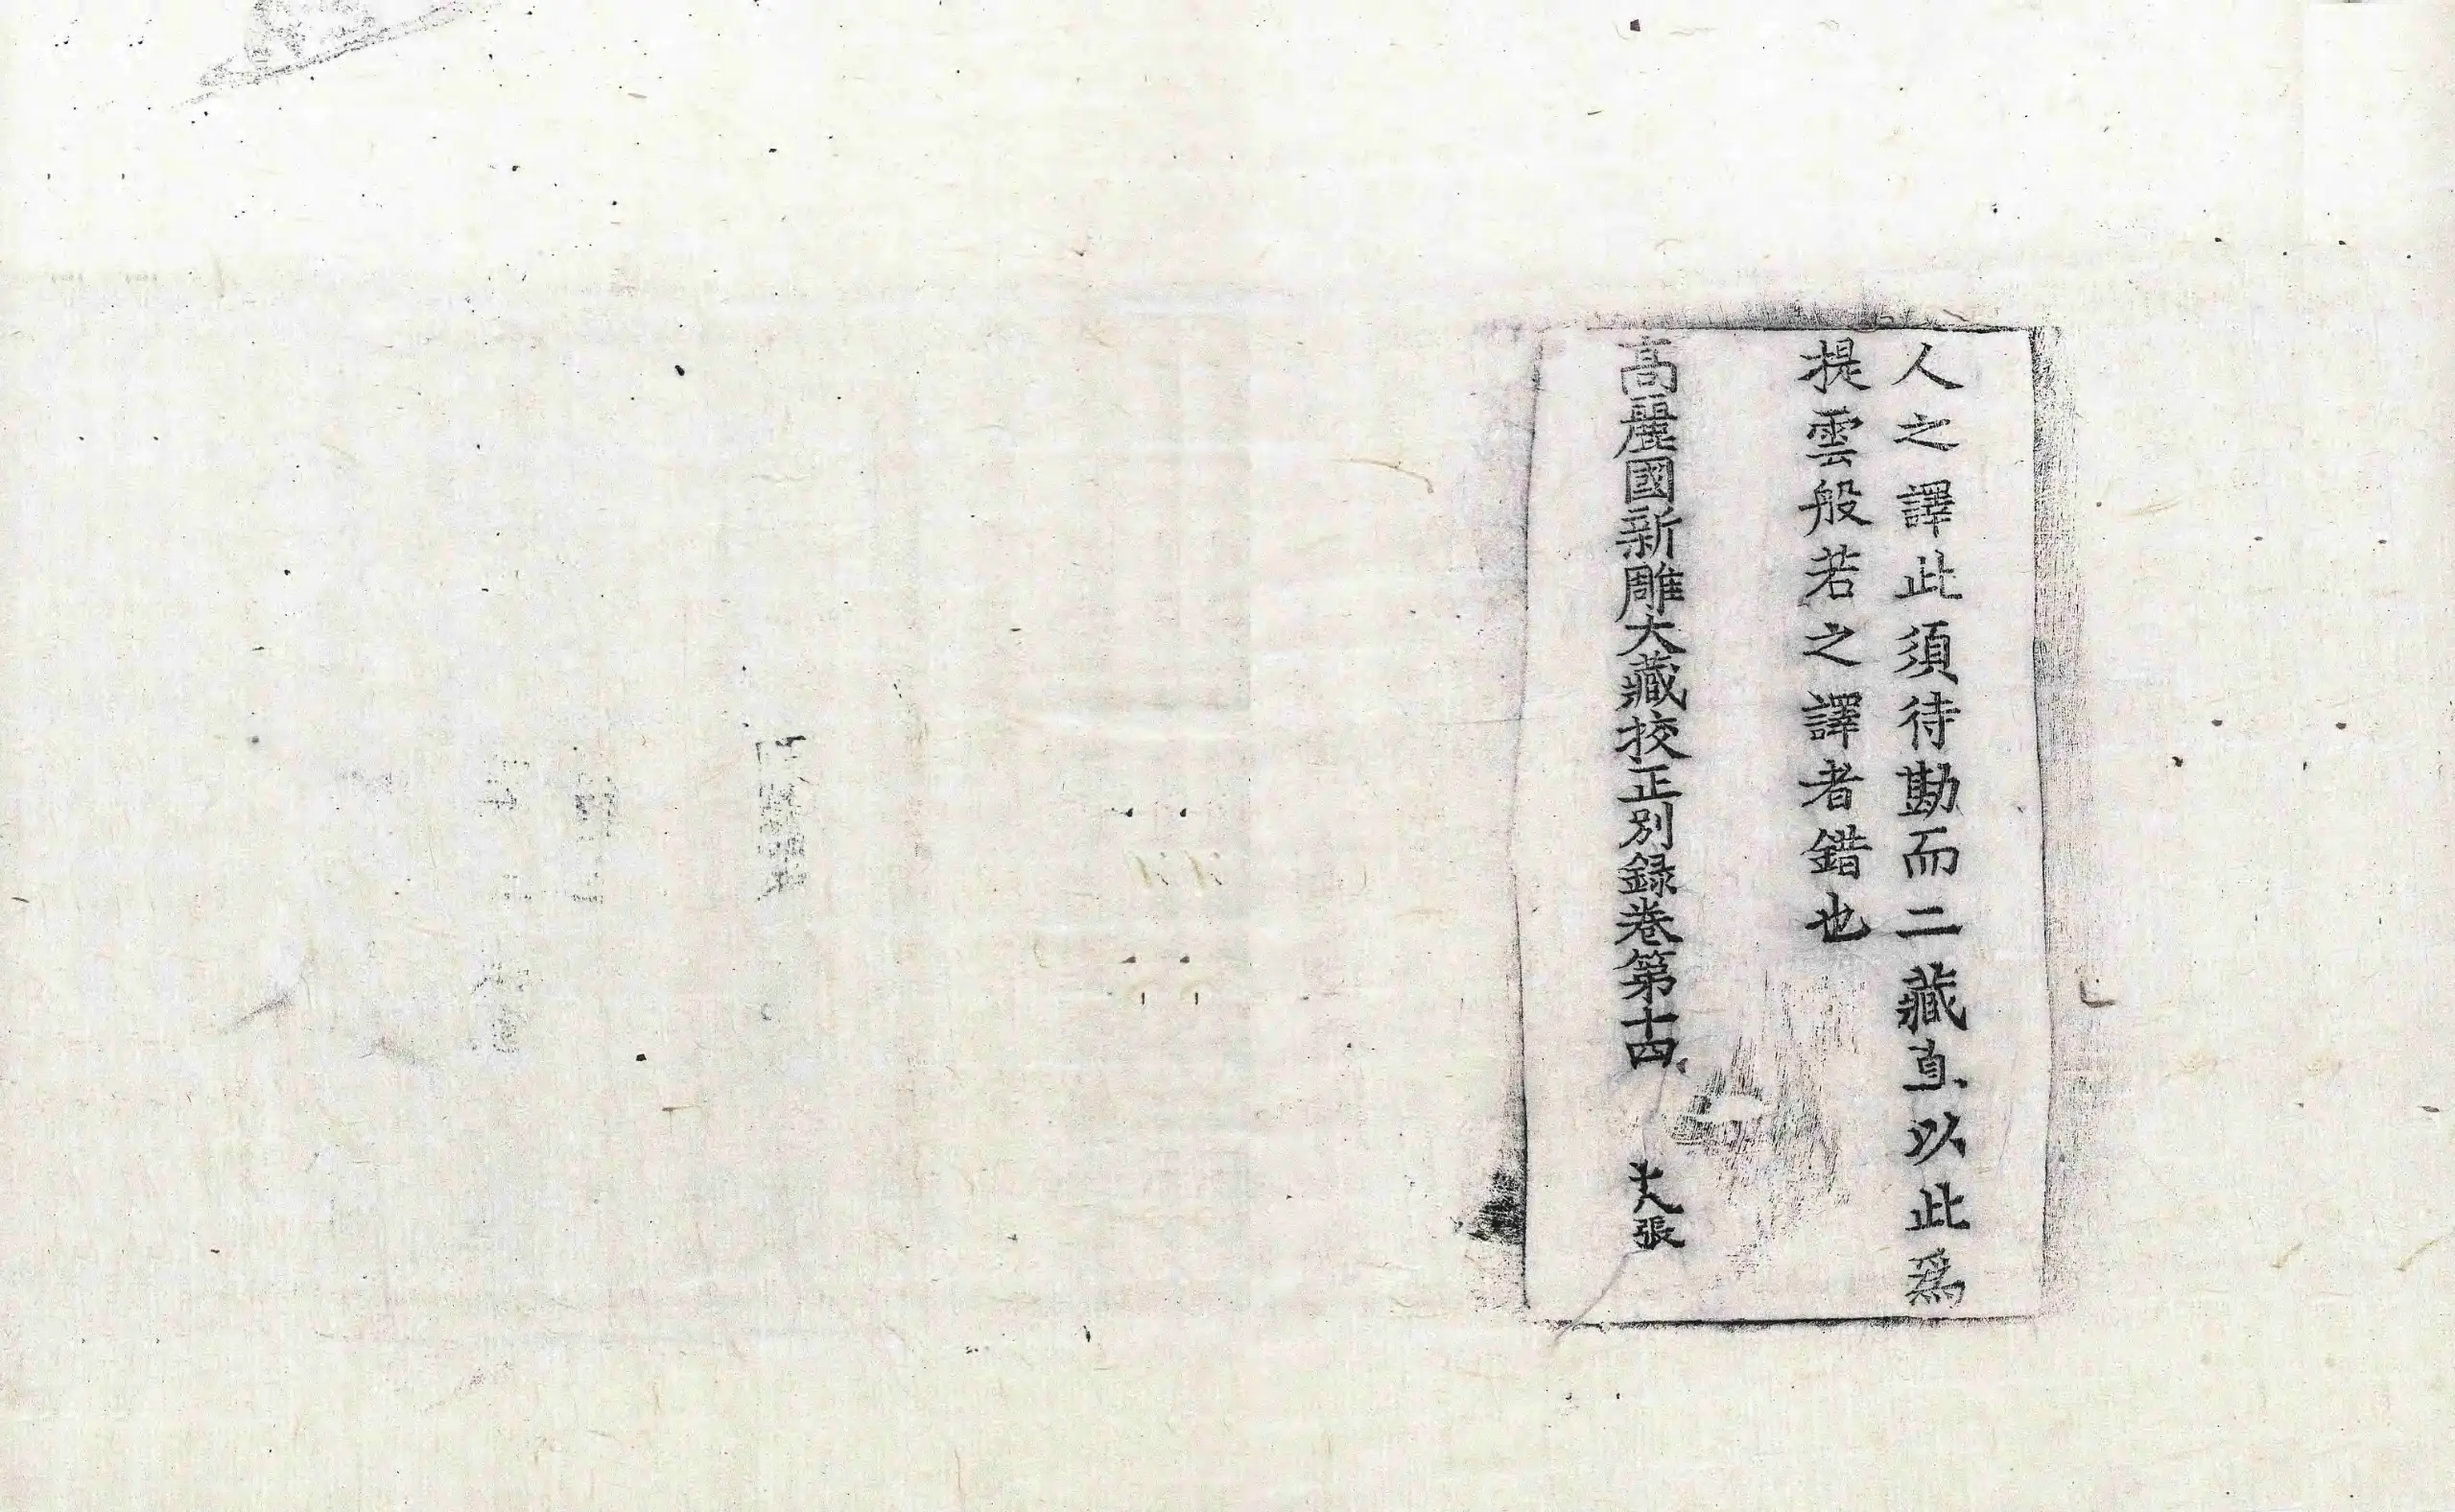 人之譯此須待勘而二藏直以此爲
提雲般若之譯者錯也
高麗國新雕大藏挍正別録卷第十四 十八張